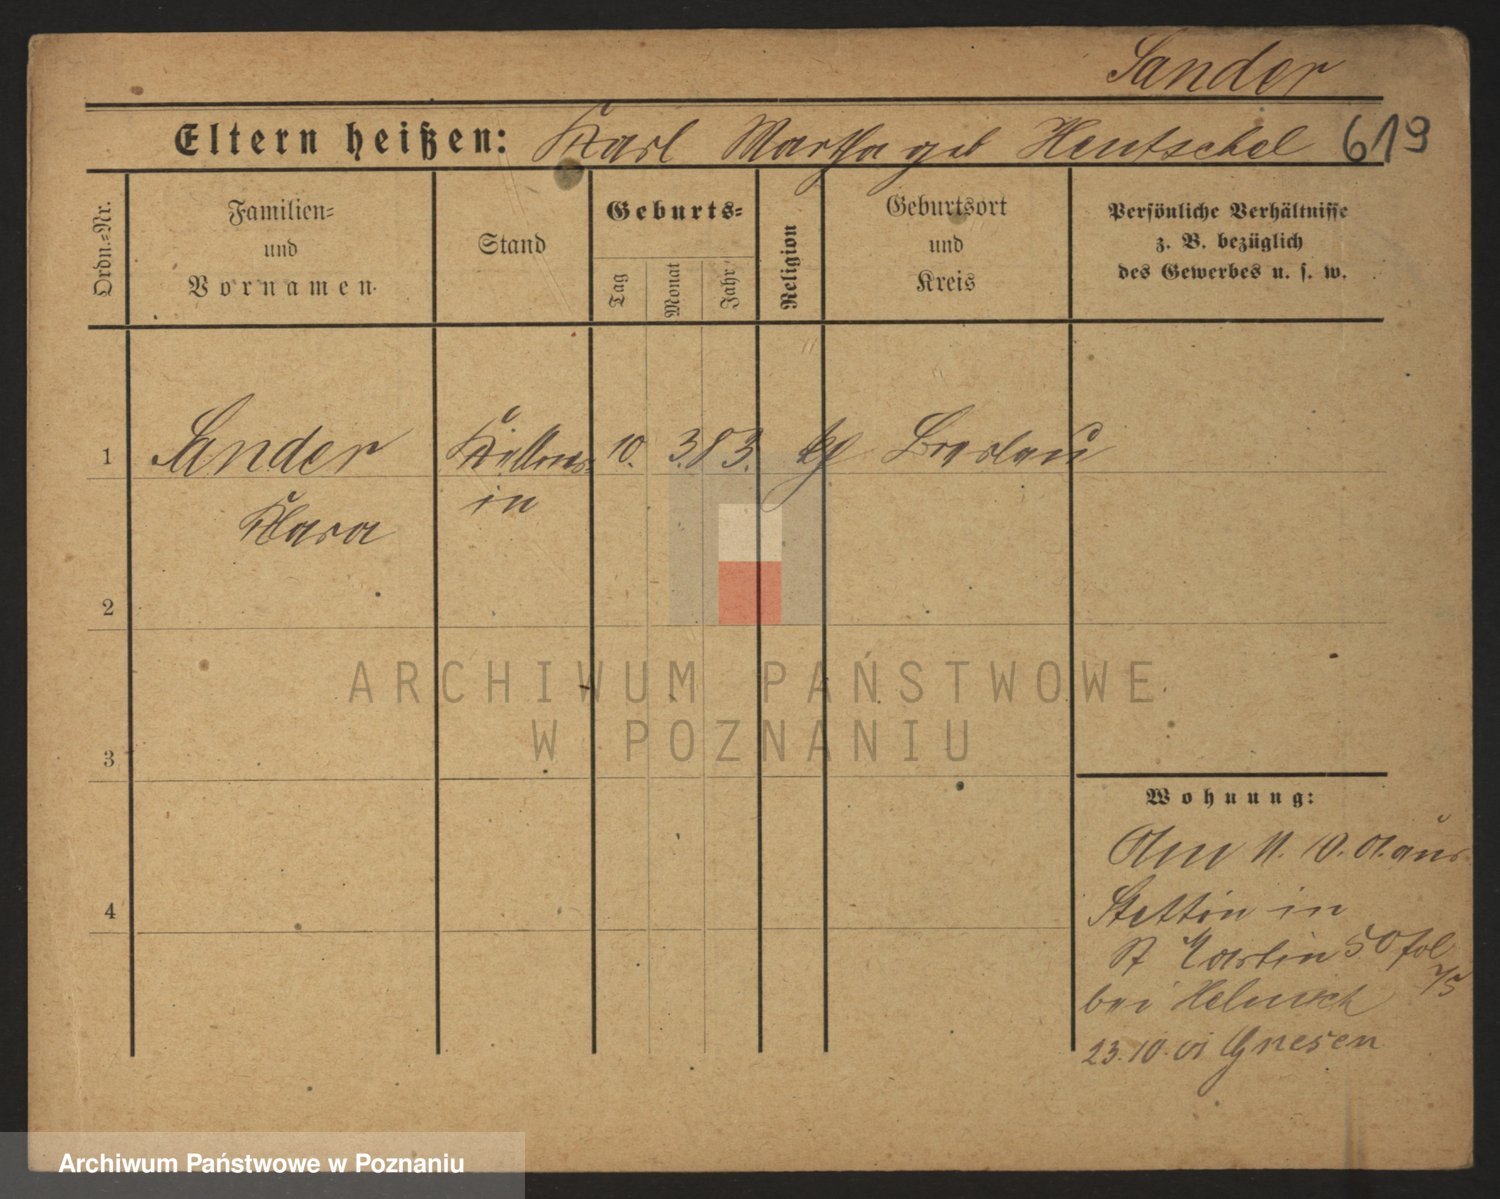 Sander
Eltern heißen: Karl Martha geb Hentschel 619
Ordn.-Nr.
Familien-
und
Vornamen.
Stand
Geburts-
Tag
Monat
Jahr
Religion
Geburtsort
und
Kreis
Persönliche Verhältnisse
z. B. bezüglich
des Gewerbes u. s. w.
1 Sander Kellner- 10. 3. 83. kg Breslau
in
Klara
2
3
4
Wohnung:
Am 11. 10. 01. aus
Stettin in
St Martin 50 fol
75
bei
23. 10. 01 Gnesen
ARCHIWUM PAŃSTWOWE
W POZNANIU
Archiwum Państwowe w Poznaniu